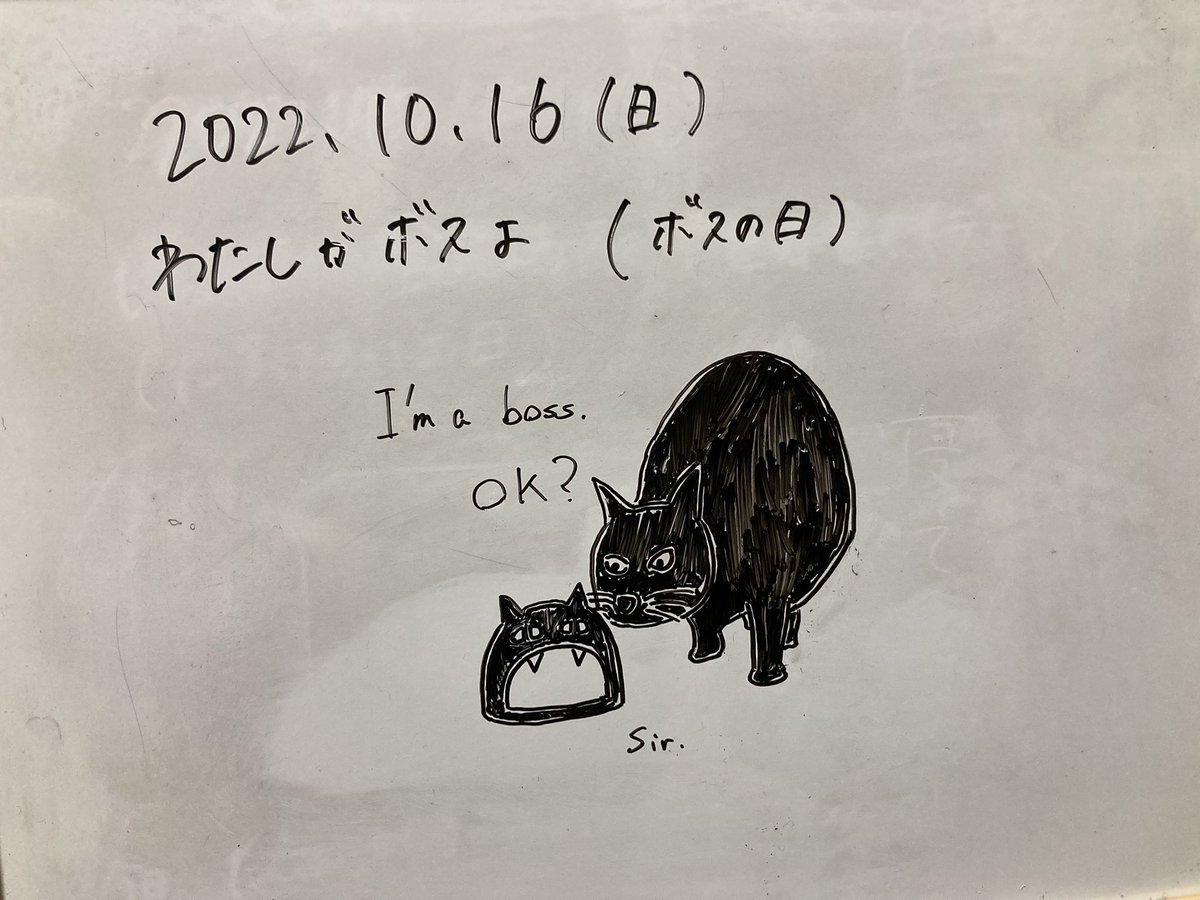 2022、10.16(日)
わたしがボスよ (ボスの日)
I'm a boss.
OK?
Sir.